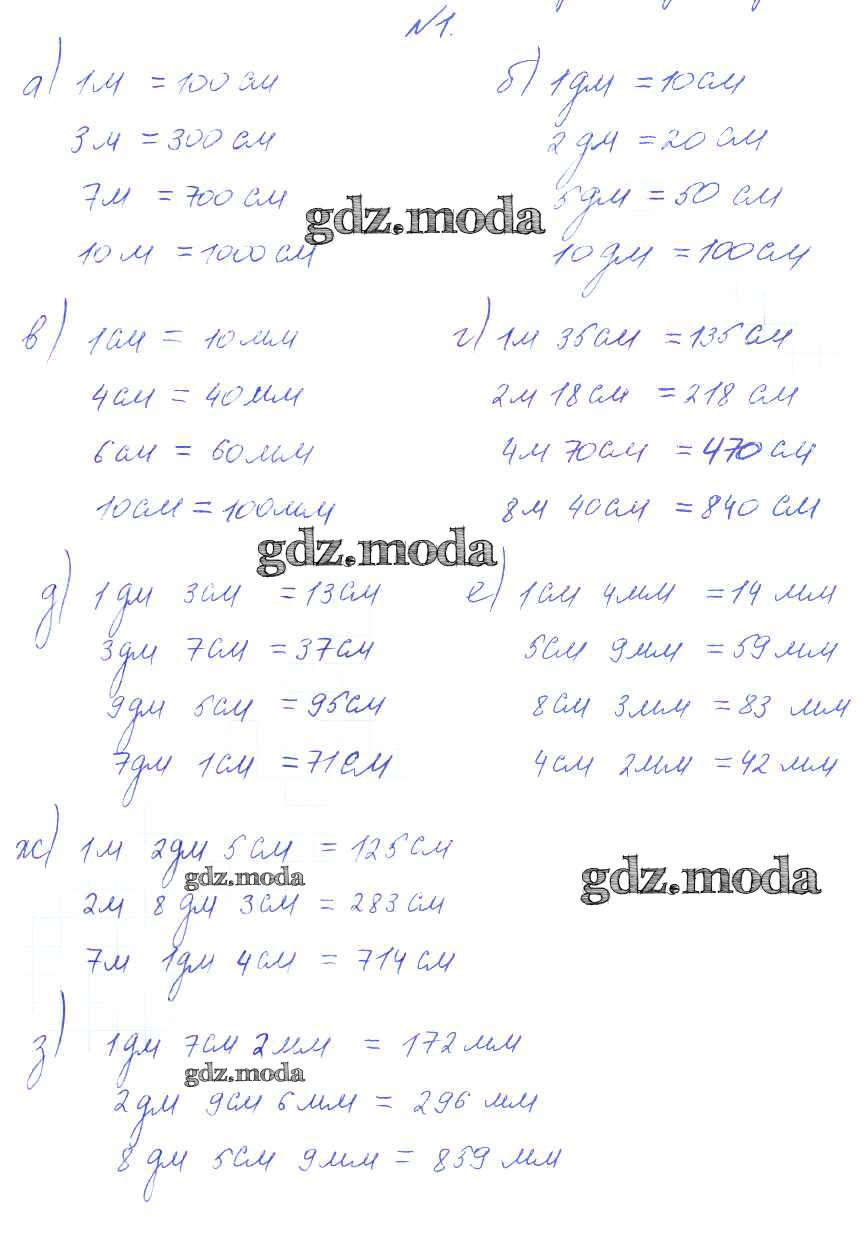 №1.
а) 1м = 100 см
3м = 300 см
7м = 700 см
10м = 1000 см
б) 1дм = 10см
2дм = 20 см
5дм = 50 см
10дм = 100 см
gdz.moda
в) 1см = 10мм
4см = 40мм
6см = 60мм
10см = 100мм
г) 1м 35см = 135см
2м 18см = 218 см
4м 70см = 470 см
8м 40см = 840 см
gdz.moda
д) 1дм 3см = 13см
3дм 7см = 37см
9дм 5см = 95см
7дм 1см = 71см
е) 1см 4мм = 14 мм
5см 9мм = 59 мм
8см 3мм = 83 мм
4см 2мм = 42 мм
ж) 1м 2дм 5см = 125см
gdz.moda
gdz.moda
2м 8дм 3см = 283 см
7м 1дм 4см = 714 см
з) 1дм 7см 2мм = 172 мм
gdz.moda
2дм 9см 6мм = 296 мм
8дм 5см 9мм = 859 мм